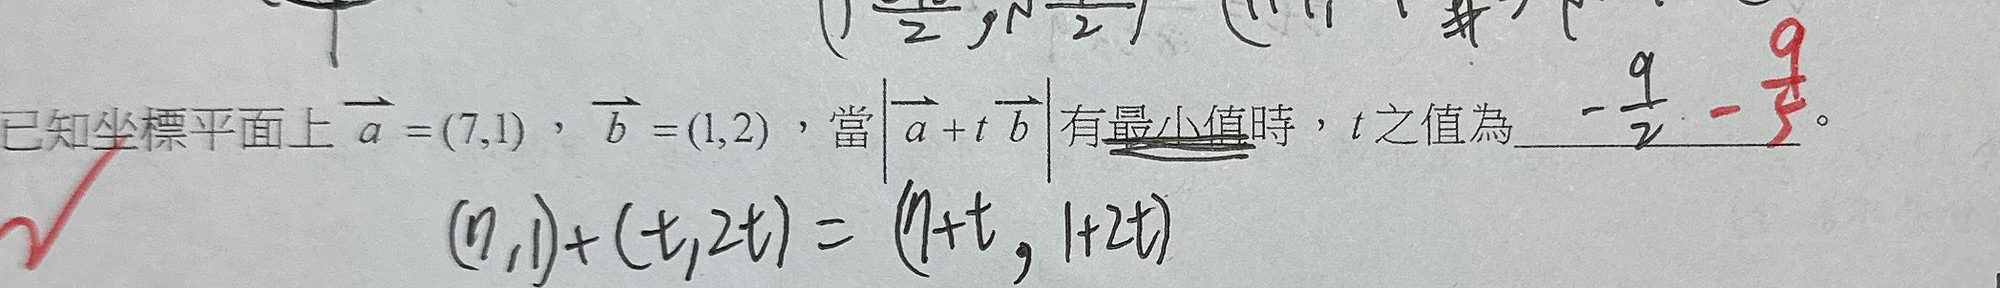 已知坐標平面上 a⃗ = (7,1)，b⃗ = (1,2)，當 |a⃗ + t b⃗| 有最小值時，t 之值為 -9/2 -9/5。
(7,1)+(t,2t) = (7+t, 1+2t)